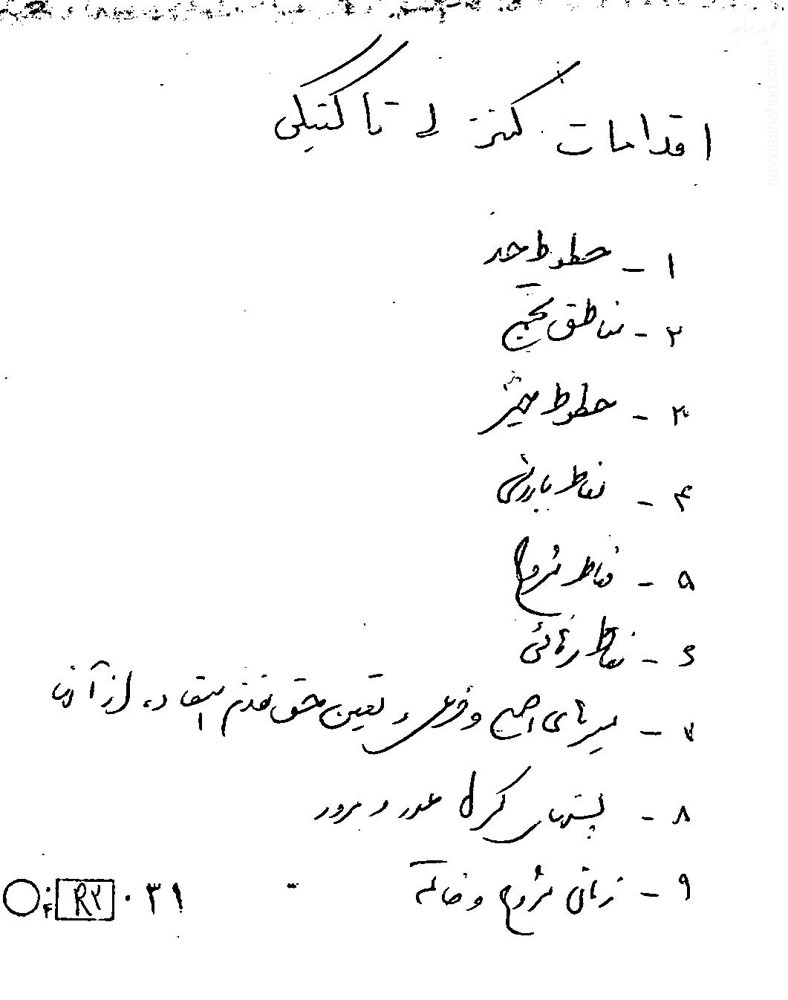 اقدامات کنترلی تاکتیکی
۱ - خطوط حد
۲ - مناطق تجمع
۳ - خطوط
۴ - نقاط بازرسی
۵ - نقاط شروع
۶ - نقاط رهائی
۷ - مسیرهای اصلی و فرعی و تعیین حق تقدم استفاده از آنها
۸ - پستهای کنترل عبور و مرور
۹ - زمان شروع و خاتمه
۰۳۱ R۲
navideshahed.com